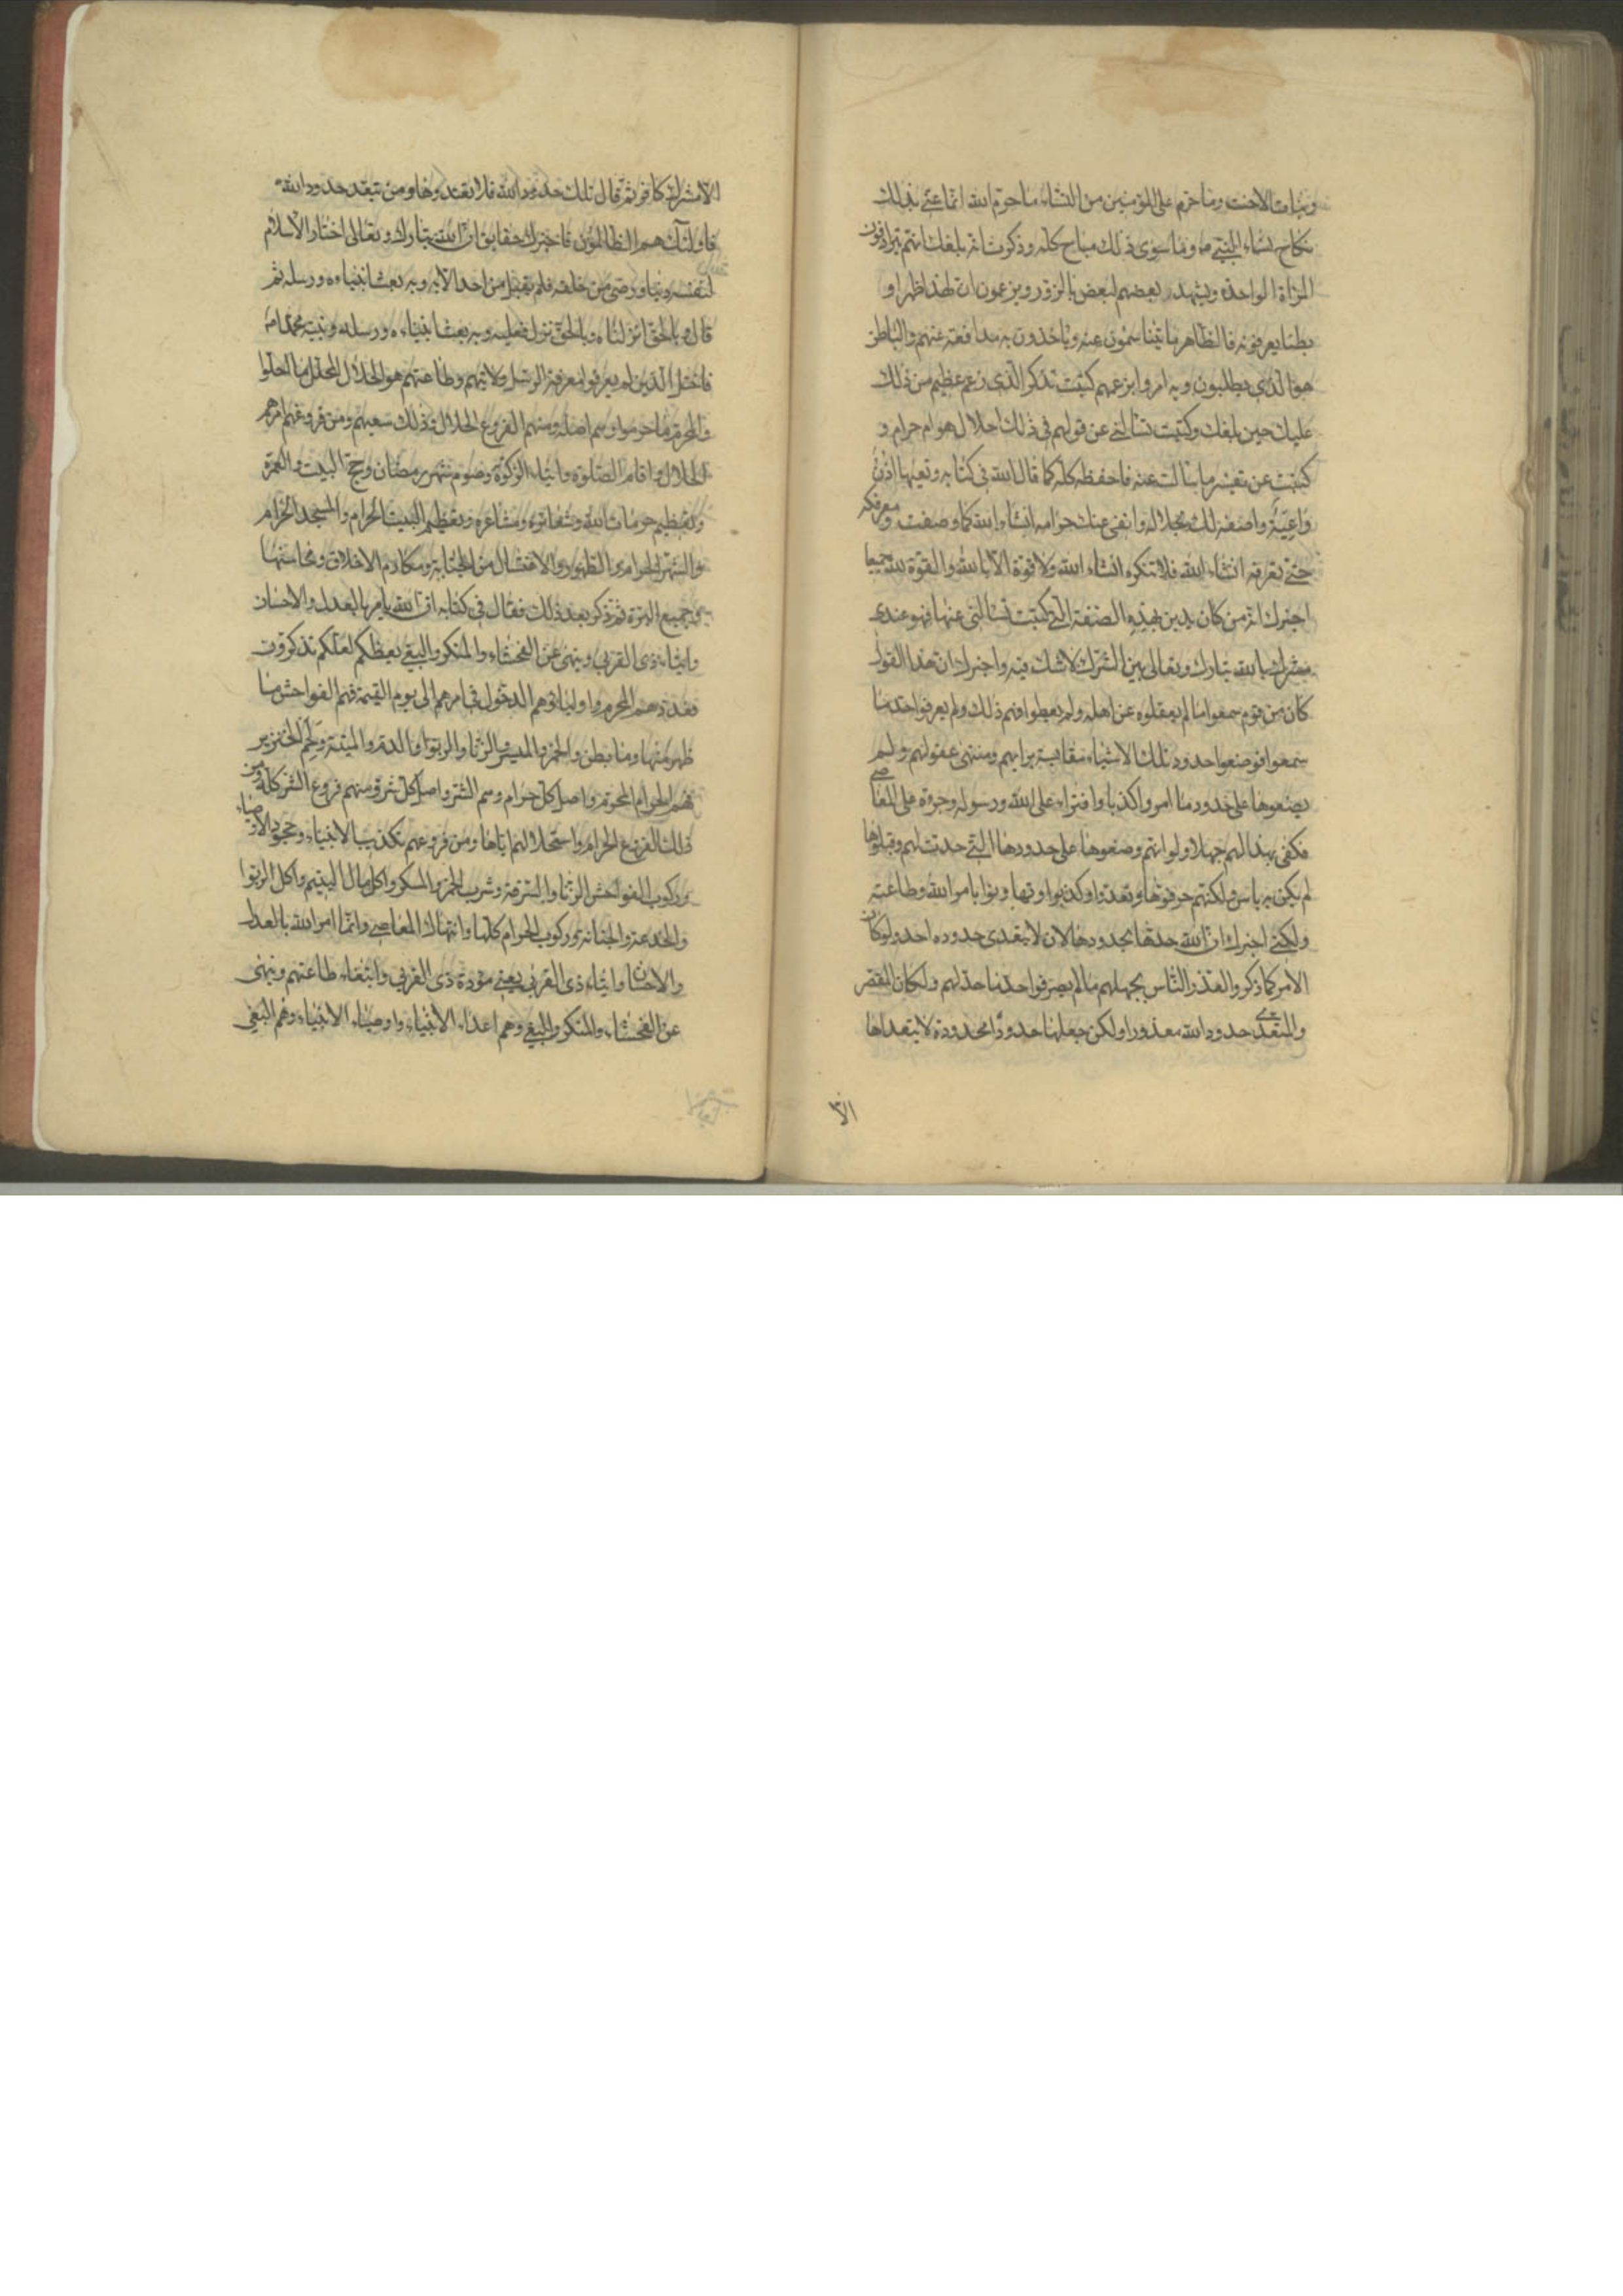 وبنات الاخت وما حرم على المؤمنين من النساء ما حرم الله انما عنى بذلك
نكاح نساء النبى ص وما سوى ذلك مباح كله وذكرت انه بلغك انهم يترادفون
المراة الواحدة ويشهد بعضهم لبعض بالزور ويزعمون ان لهذا ظهرا و
بطنا يعرفونه فالظاهر ما يتناسمون عنه وياخذون به مدافعة عنهم والباطن
هو الذى يطلبون وبه امروا بزعمهم كتبت تذكر الذى زعم عظيم من ذلك
عليك حين بلغك وكتبت تسالنى عن قولهم فى ذلك احلال هو ام حرام و
كتبت عن تفسير ما سالت عنه فاحفظه كله كما قال الله فى كتابه وتعيها اذن
واعية واصفه لك بحلاله وانفى عنك حرامه انشاء الله كما وصفت ومعرفكه
حتى تعرفه انشاء الله فلا تنكره انشاء الله ولا قوة الا بالله والقوة لله جميعا
اخبرك انه من كان يدين بهذه الصفة التى كتبت تسالنى عنها فهو عندى
مشرك بالله تبارك وتعالى بين الشرك لا شك فيه واخبرك ان هذا القول
كان من قوم سمعوا ما لم يعقلوه عن اهله ولم يعطوا فهم ذلك ولم يعرفوا حد ما
سمعوا فوضعوا حدود تلك الاشياء مقايسة برايهم ومنتهى عقولهم ولم
يضعوها على حدود ما امروا كذبا وافتراء على الله ورسوله وجرءة على المعاصى
فكفى بهذا لهم جهلا ولو انهم وضعوها على حدودها التى حدت لهم وقبلوها
لم يكن به باس ولكنهم حرفوها وتعدوا وكذبوا وتهاونوا بامر الله وطاعته
ولكنى اخبرك ان الله حدها بحدودها لان لا يتعدى حدوده احد ولو كان
الامر كما ذكروا لعذر الناس بجهلهم ما لم يعرفوا حد ما حد لهم ولكان المقصر
والمتعدى حدود الله معذورا ولكن جعلها حدودا محدودة لا يتعداها
الا
الا مشرك كافر ثم قال تلك حدود الله فلا تعتدوها ومن يتعد حدود الله
فاولئك هم الظالمون فاخبرك حقايق ان الله تبارك وتعالى اختار الاسلام
لنفسه دينا ورضى من خلقه فلم يقبل من احد الا به وبه بعث انبياءه ورسله ثم
قال وبالحق انزلناه وبالحق نزل فعليه وبه بعث انبياءه ورسله ونبيه محمدا ص
فاختل الذين لم يعرفوا معرفة الرسل وولايتهم وطاعتهم هو الحلال المحلل ما احلوا
والمحرم ما حرموا وهم اصله ومنهم الفروع الحلال وذلك سعيهم ومن فروعهم امرهم
الحلال واقام الصلوة وايتاء الزكوة وصوم شهر رمضان وحج البيت والعمرة
وتعظيم حرمات الله وشعائره ومشاعره وتعظيم البيت الحرام والمسجد الحرام
والشهر الحرام والطهور والاغتسال من الجنابة ومكارم الاخلاق ومحاسنها
وجميع البر ثم ذكر بعد ذلك فقال فى كتابه ان الله يامر بالعدل والاحسان
وايتاء ذى القربى وينهى عن الفحشاء والمنكر والبغى يعظكم لعلكم تذكرون
فعدوهم المحرم واولياؤهم الدخول فى امرهم الى يوم القيمة فهم الفواحش ما
ظهر منها وما بطن والخمر والميسر والزنا والربوا والدم والميتة ولحم الخنزير
فهم الحرام المحرم واصل كل حرام وهم الشر واصل كل شر ومنهم فروع الشر كله ومن
ذلك الفروع الحرام واستحلالهم اياها ومن فروعهم تكذيب الانبياء وجحود الاوصياء
وركوب الفواحش الزنا والسرقة وشرب الخمر والمسكر واكل مال اليتيم واكل الربوا
والخدعة والخيانة وركوب الحرام كلها وانتهاك المعاصى وانما امر الله بالعدل
والاحسان وايتاء ذى القربى يعنى مودة ذى القربى وابتغاء طاعتهم وينهى
عن الفحشاء والمنكر والبغى وهم اعداء الانبياء واوصياء الانبياء وهم البغى